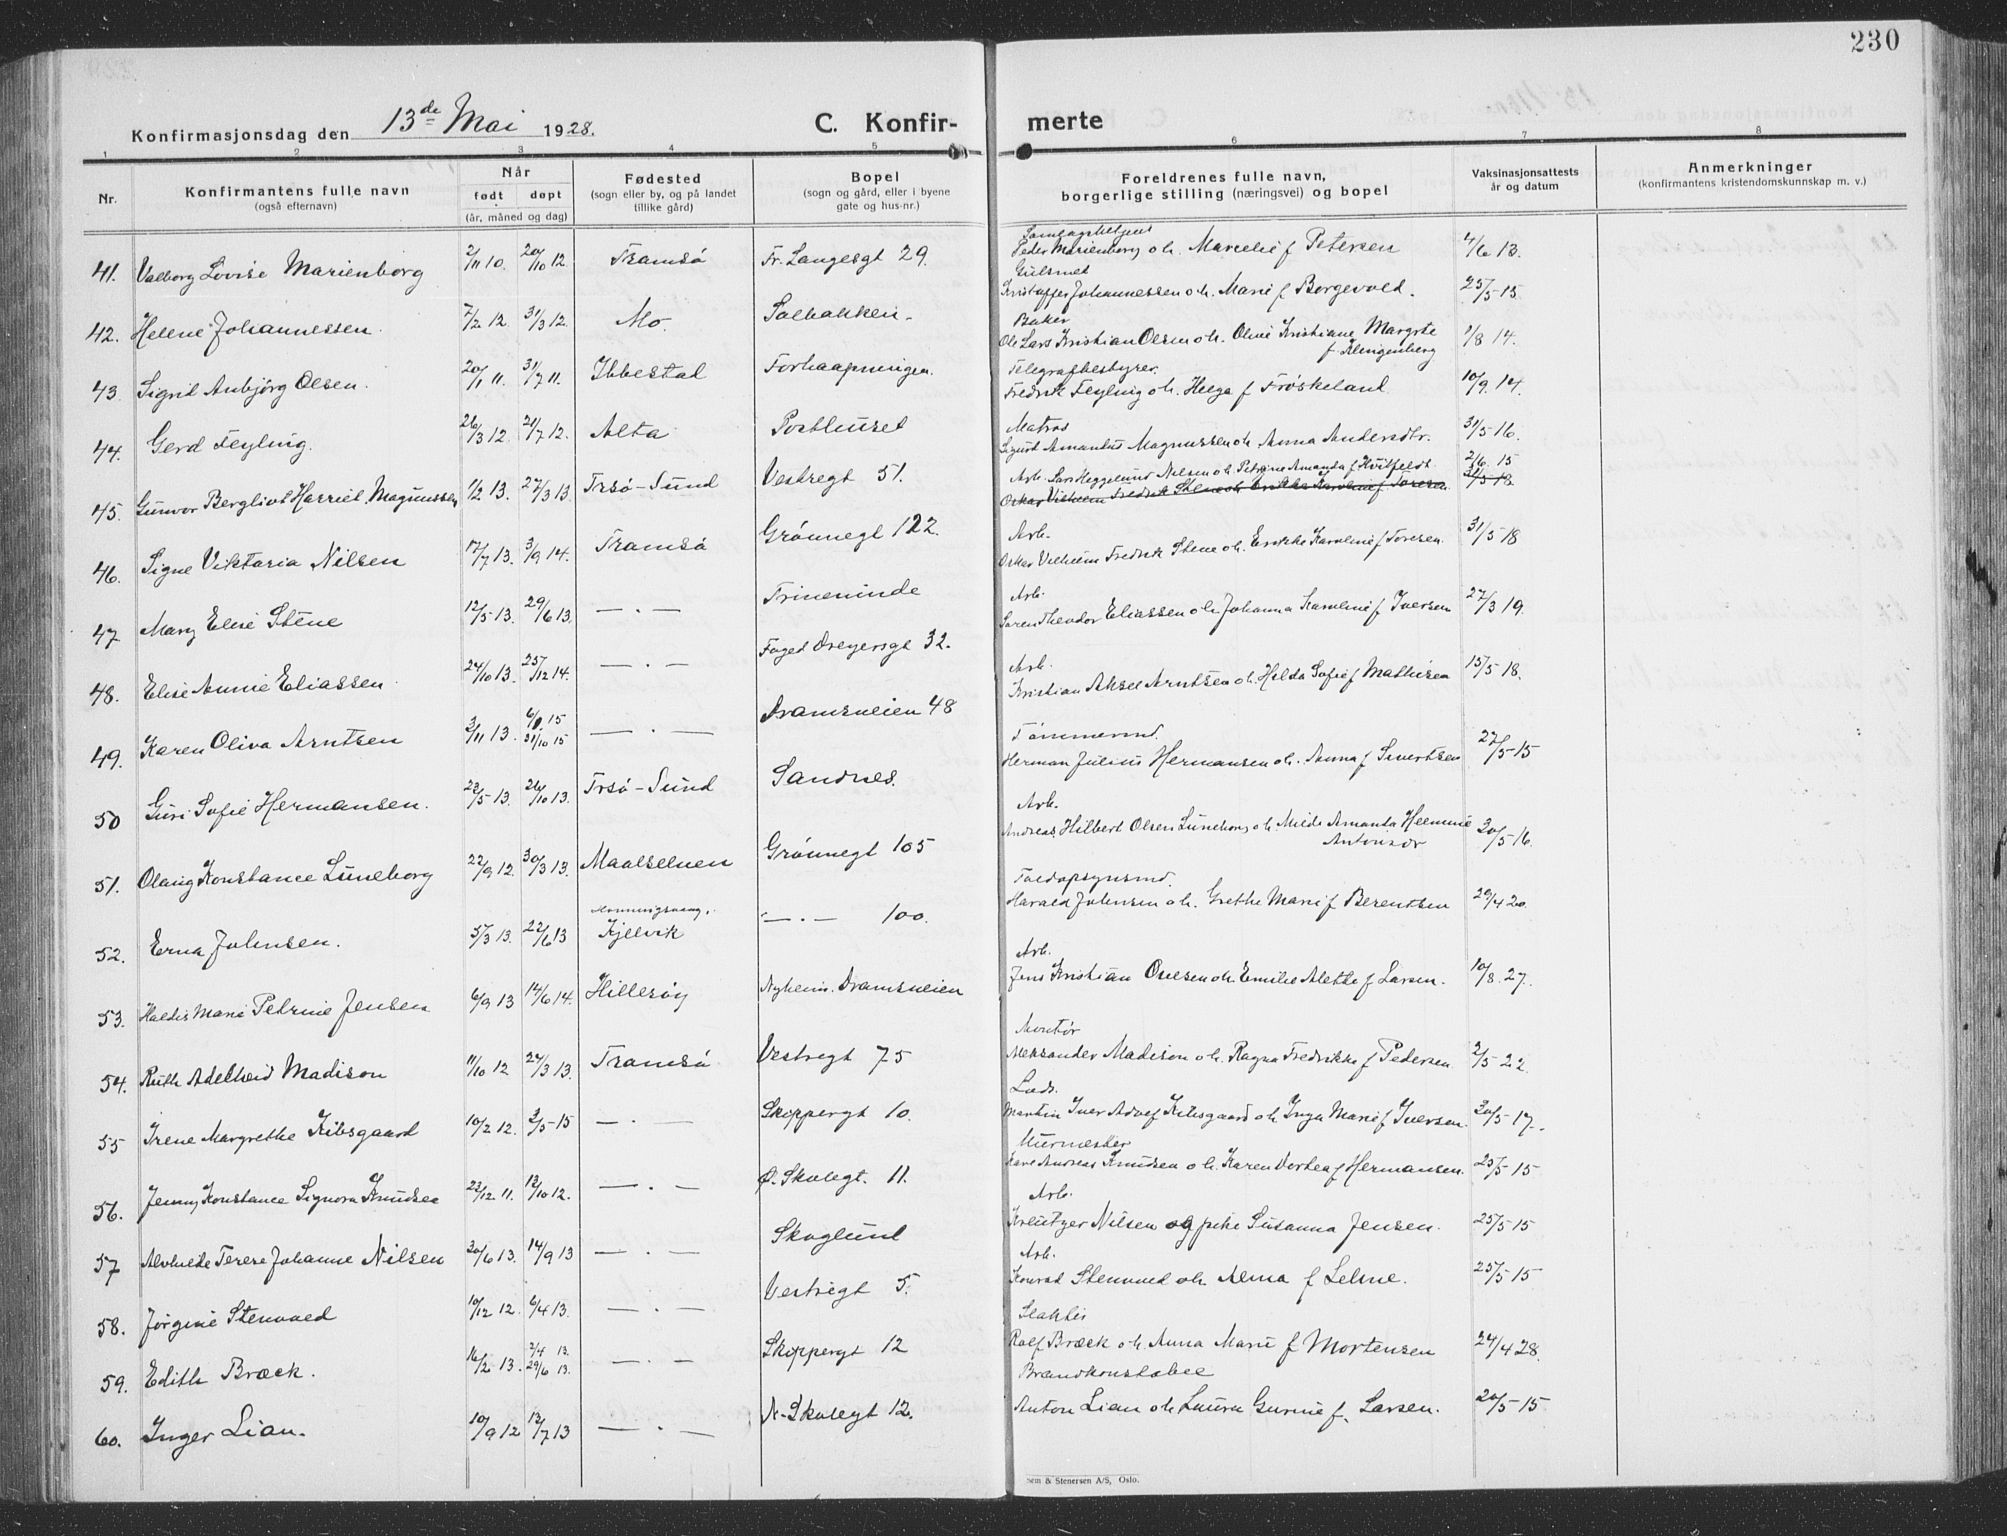 230
Konfirmasjonsdag den 13de Mai 1928.
C. Konfir-
merte
1 2 3 4 5 6 7 8
Nr.
Konfirmantens fulle navn
(også efternavn)
Når
født døpt
(år, måned og dag)
Fødested
(sogn eller by, og på landet
tillike gård)
Bopel
(sogn og gård, eller i byene
gate og hus-nr.)
Foreldrenes fulle navn,
borgerlige stilling (næringsvei) og bopel
Vaksinasjonsattests
år og datum
Anmerkninger
(konfirmantens kristendomskunnskap m. v.)
41. Valborg Lovise Marienborg 2/11 10. 20/10 12. Tromsø Fr. Langesgt 29.
Peder Marienborg o h. Marselie f Petersen 4/6 13.
42. Helene Johannessen. 7/2 12. 31/3 12. Mo. Solbakken.
Gulsmed
Kristoffer Johannessen o h. Marie f Borgevold. 25/5 15.
43. Sigrid Anbjørg Olsen. 20/1 11. 31/7 11. Ibbestad Forhaapningen.
Baker
Ole Lars Kristian Olsen o h. Oline Kristiane Margrete
f Klingenberg 1/8 14.
44. Gerd Feyling. 26/3 12. 21/7 12. Alta Posthuset
Telegrafbestyrer.
Fredrik Feyling o h. Helga f Frøskeland 10/9. 14.
45. Gunvor Bergliot Harriet Magnussen 1/2 13. 27/3 13. Trsø-Sund Vestregt 51.
Matros
Sigurd Amandus Magnussen o h Anna Andersdtr. 31/5 16.
46. Signe Viktoria Nilsen 17/7 13. 3/9 14. Tromsø Grønnegt 122.
Arb. Lars Heggelund Nilsen o h Petrine Amanda f Hvitfeldt 2/6. 15
Oskar Vilhelm Fredrik Stene o h Erikke Karoline f Toresen 31/5 18
47 Mary Elise Stene 12/5 13. 29/6 13. — . — Trineminde
Arb.
Oskar Vilhelm Fredrik Stene o h. Erikke Karoline f Toresen. 31/5 18
48. Elise Annie Eliassen. 24/10 13. 25/12 14. — . — Foged Dreyersgt 32.
Arb.
Søren Theodor Eliassen o h Johanna Karoline f Iversen 27/3 19.
49. Karen Oliva Arntsen 3/11 13. 6/8 15 31/10 15 — . — Dramsveien 48
Arb.
Kristian Aksel Arntsen o h. Hilda Sofie f Mathisen 15/5 18.
50 Guri Sofie Hermansen. 22/5 13. 26/10 13. Trsø-Sund Sandnes.
Tømmermd.
Herman Julius Hermansen o h. Anna f Sivertsen 27/5-15
51. Olaug Konstance Luneborg 22/9 12. 30/3 13. Maalselven Grønnegt 105
Arb.
Andreas Hilbert Olsen Luneborg o h. Milde Amanda Hermine
Antonsdr 30/5 16.
52. Erna Johnsen. 5/3 13. 22/6 13 Honningsvaag, Kjelvik — . — 100.
Toldopsynsmd.
Harald Johnsen o h. Grethe Marie f Berentsen 29/4 20.
53. Haldis Marie Petrine Jensen 6/9 13 14/6 14. Hillesøy Nyheim. Dramsveien
Arb.
Jens Kristian Ovesen o h. Emilie Alette f Larsen. 10/8. 27.
54. Ruth Adelheid Madison 11/10 12 24/3 13. Tromsø Vestregt 75
Montør
Aleksander Madison o h. Ragna Fredrikke f Pedersen 2/5 22.
55 Irene Margrethe Kibsgaard 10/2 12. 3/5-15 — . — Skippergt 10.
Lods.
Martin Iver Adolf Kibsgaard o h Inga Marie f Iversen. 30/5-17.
56. Jenny Konstance Signora Knudsen 23/12 11. 13/10 12. — . — Ø. Skolegt. 11.
Murmester
Kare Andreas Knudsen o h. Karen Dorthea f Hermansen. 25/5 15
57 Alvhilde Terese Johanne Nilsen 30/6 13. 14/9 13 — . — Skoglund
Arb.
Kreutzer Nilsen og pike Susanna Jensen. 25/5 15
58. Jørgine Stenvold 10/12 12. 6/4 13. — . — Vestregt 5.
Arb.
Konrad Stenvold o h Alma f Lelme. 25/5-15
59. Edith Bræck. 16/2 13. 2/4 13. 29/6 13. — . — Skippergt 12
Slakter
Rolf Bræck o h. Anna Marie f Mortensen 24/4 28.
60. Inger Lian. 10/9 12 13/7 13 — . — N. Skolegt 12.
Brandkonstabel
Anton Lian o h Laura Gurine f. Larsen. 20/5-15
Sem & Stenersen A/S, Oslo.